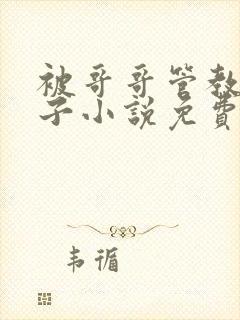 被哥哥管教
子小說免費
韦循